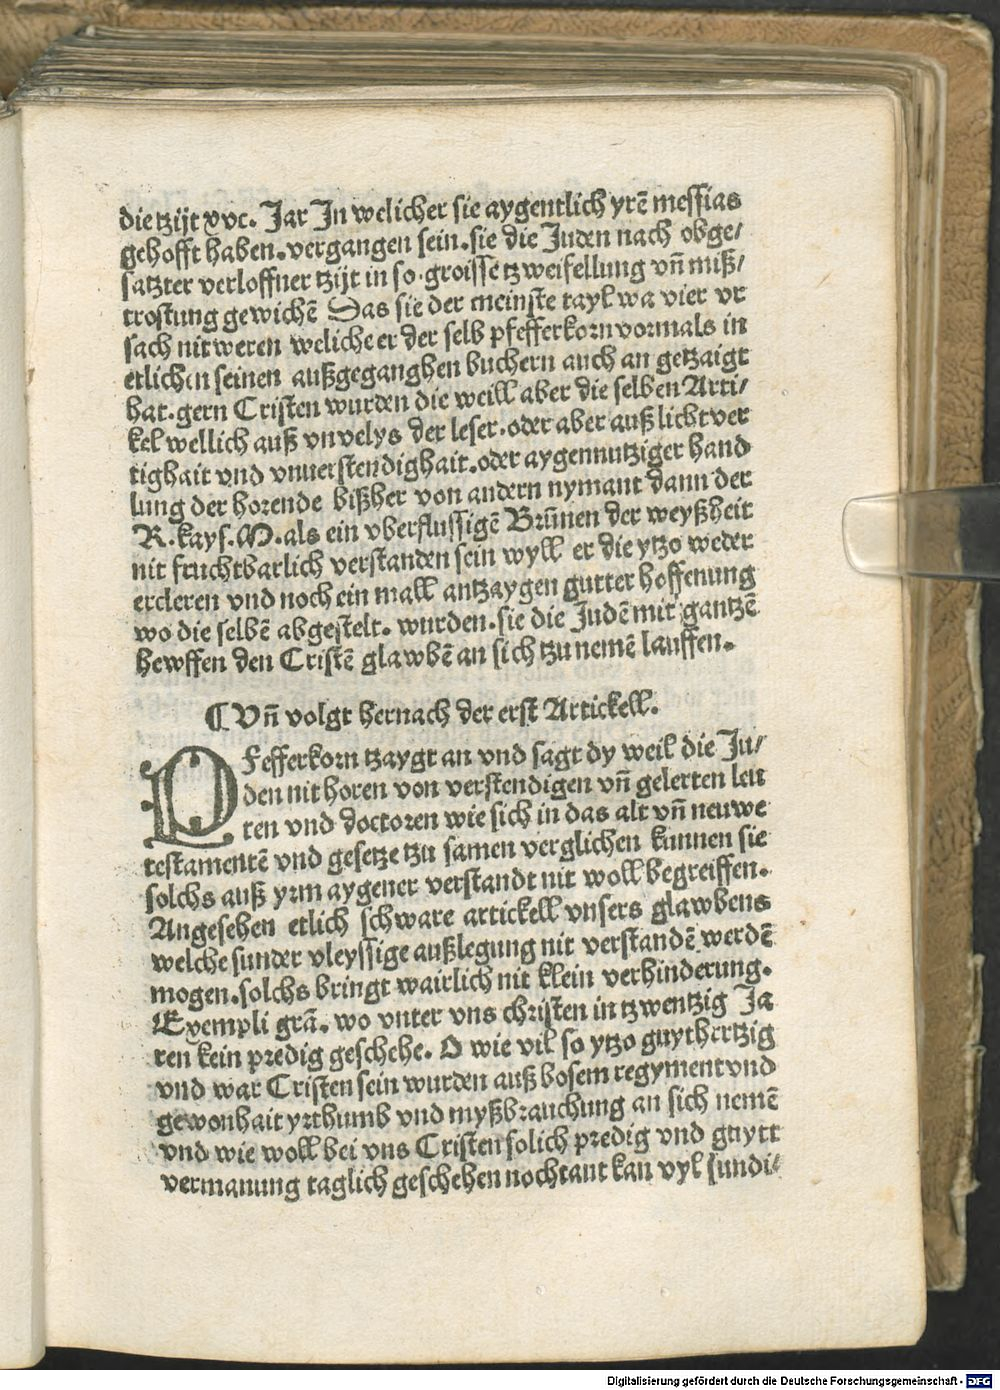 die tzijt xvc. Jar Jn welicher sie aygentlich yrē messias
gehofft haben. vergangen sein. sie die Juden nach obge/
satzter verloffner tzijt in so. groisse tzweifellung vn̄ miß/
trostung gewichē Das sie der meinste tayl wa vier vr
sach nit weren weliche er der selb pfefferkorn vormals in
etlichen seinen außgeganghen buchern auch an getzaigt
hat. gern Cristen wurden die weill aber die selben Arti/
kel wellich auß vnvelys der leser. oder aber auß licht ver
tighait vnd vnuerstendighait. oder aygennutziger hand
lung der horende bißher von andern nymant dann der
R. kays. M. als ein vberflussigē Brūnen der weyßheit
nit fruchtbarlich verstanden sein wyll er die ytzo weder
ercleren vnd noch ein mall antzaygen gutter hoffenung
wo die selbē abgestelt. wurden. sie die Judē mit gantzē
hewffen den Cristē glawbē an sich tzu nemē lauffen.
¶ Vn̄ volgt hernach der erst Artickell.
PFefferkorn tzaygt an vnd sagt dy weil die Ju/
den nit horen von verstendigen vn̄ gelerten leu
ten vnd doctoren wie sich in das alt vn̄ neuwe
testamentē vnd gesetze tzu samen verglichen kunnen sie
solchs auß yrm aygener verstandt nit woll begreiffen.
Angesehen etlich schware artickell vnsers glawbens
welche sunder vleyssige außlegung nit verstandē werdē
mogen. solchs bringt wairlich nit klein verhinderung.
Exempli grā. wo vnter vns christen in tzwentzig Ja
ren kein predig geschehe. O wie vil so ytzo guythertzig
vnd war Cristen sein wurden auß bosem regyment vnd
gewonhait yrthumb vnd myßbrauchung an sich nemē
vnd wie woll bei vns Cristen solich predig vnd guytt
vermanung taglich geschehen nochtant kan vyl sundi/
Digitalisierung gefördert durch die Deutsche Forschungsgemeinschaft - DFG